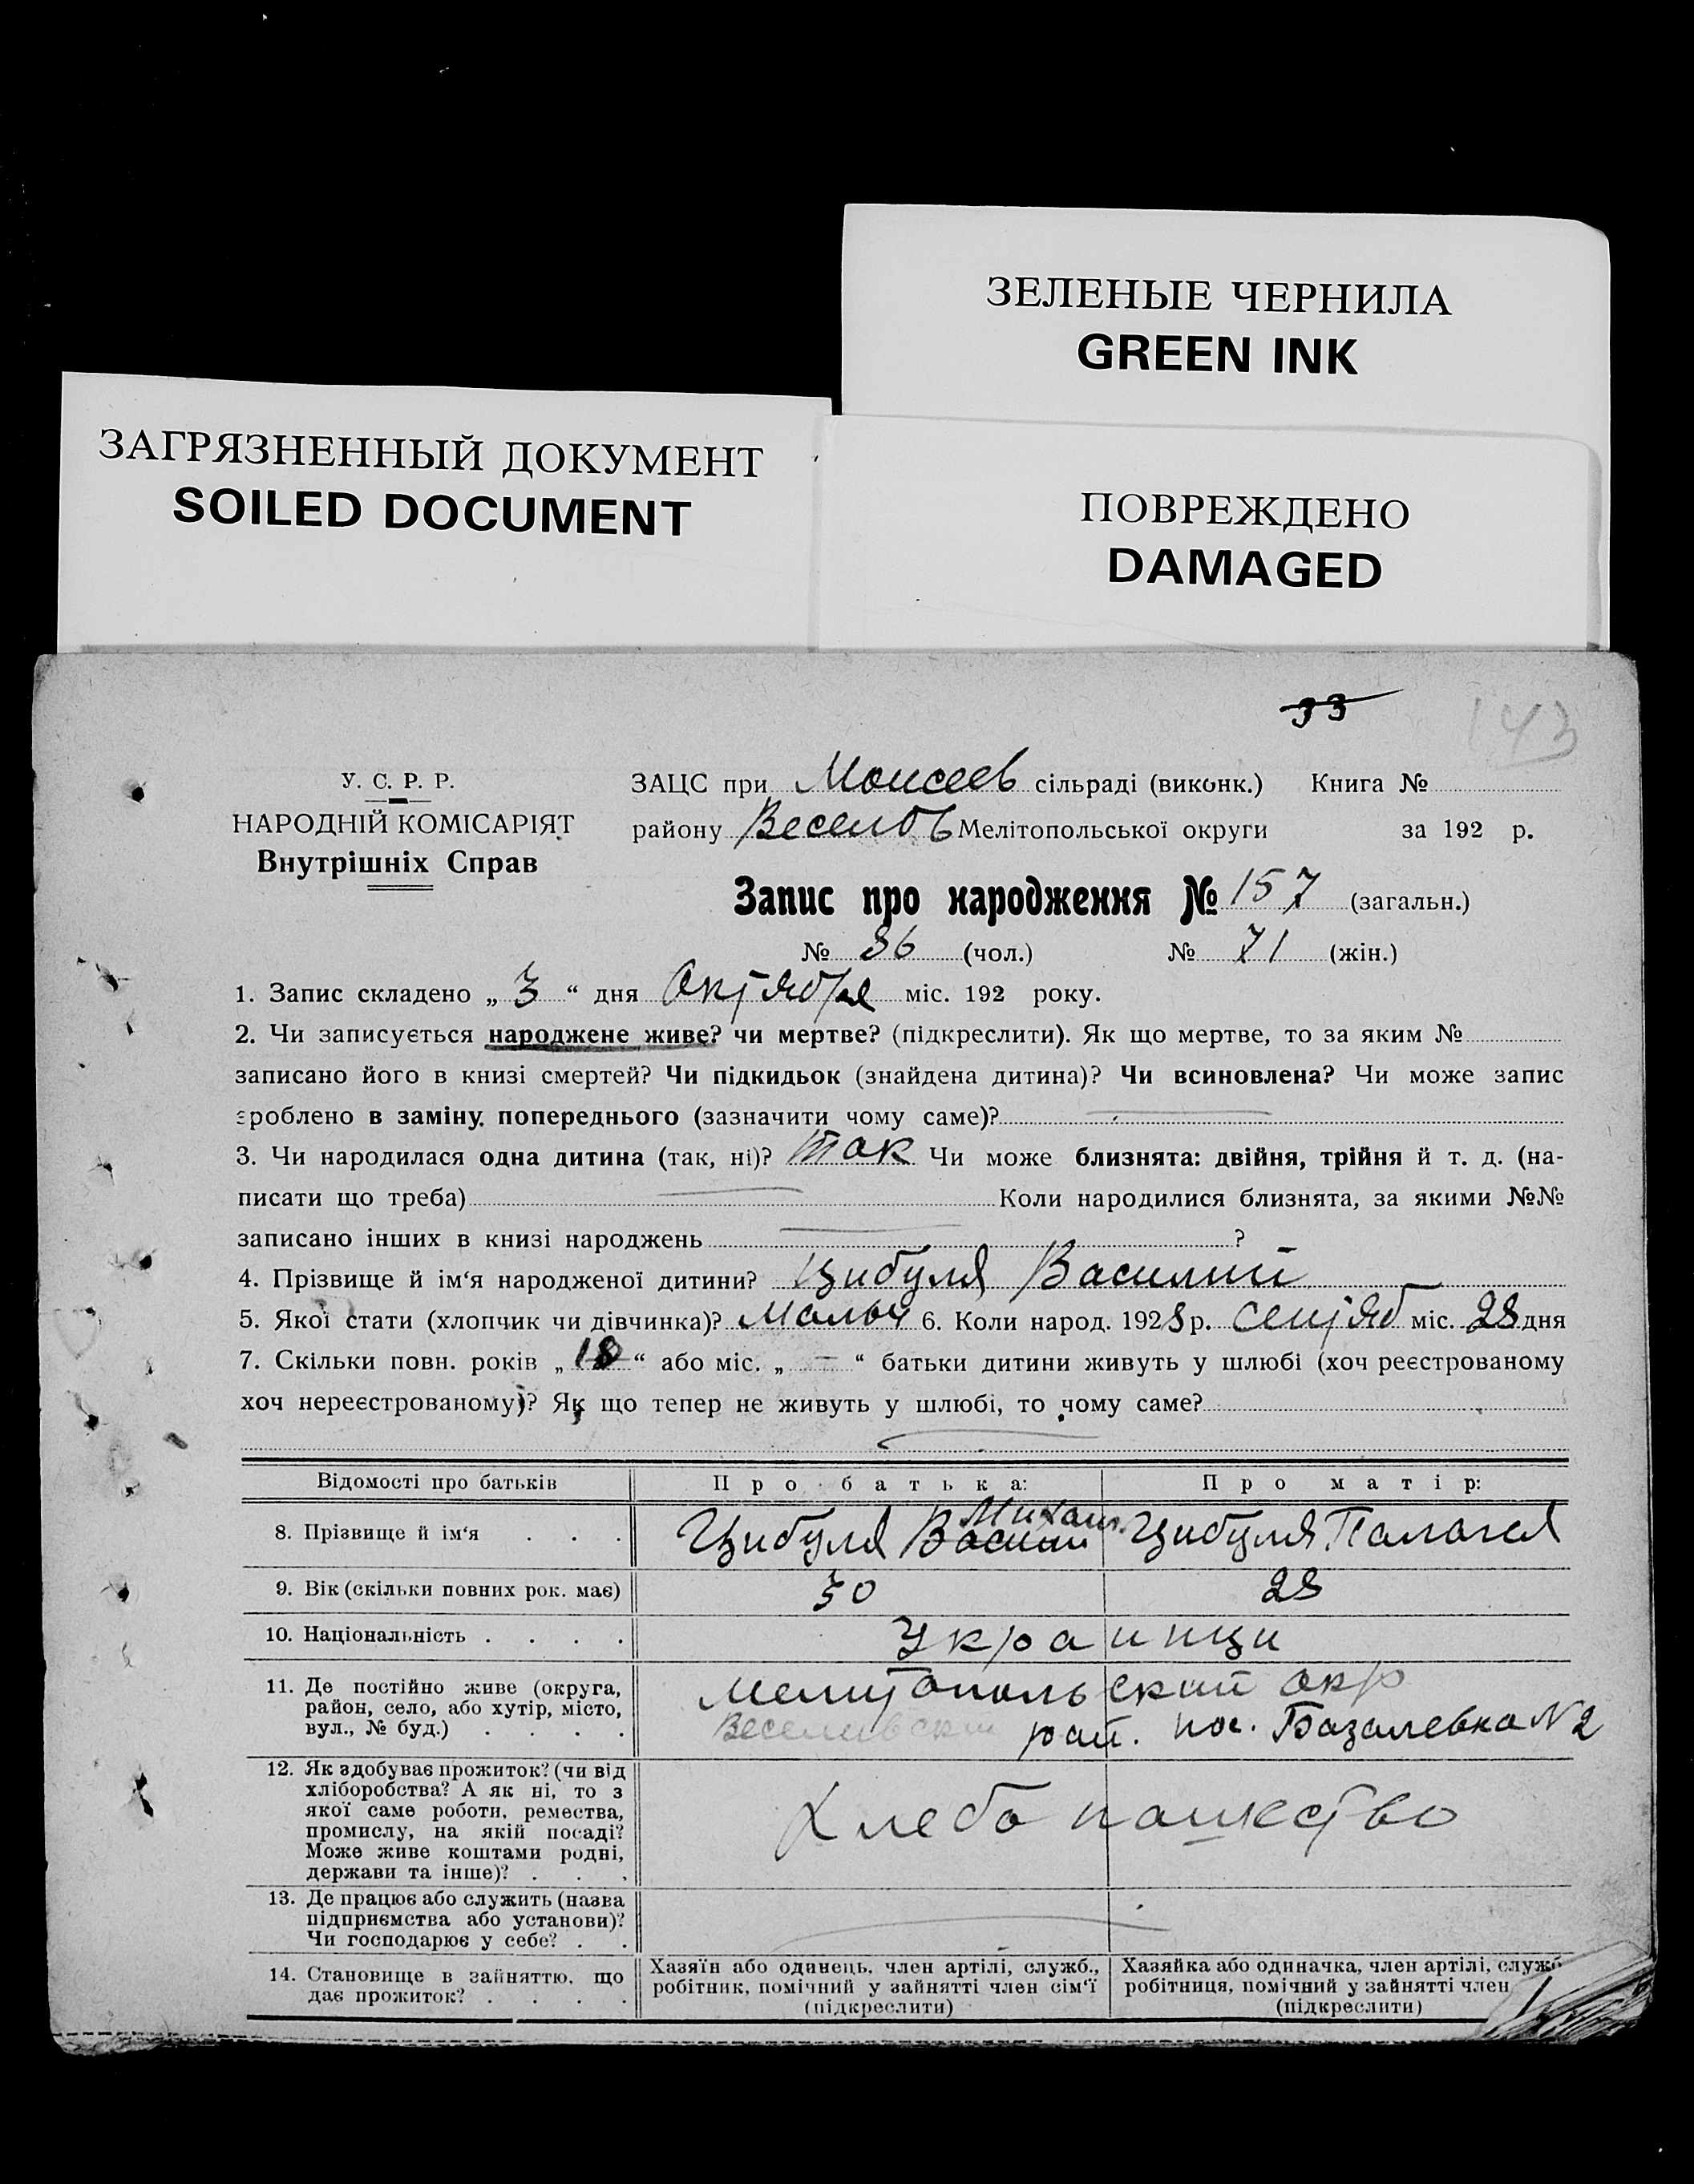 ЗЕЛЕНЫЕ ЧЕРНИЛА
GREEN INK
ЗАГРЯЗНЕННЫЙ ДОКУМЕНТ
SOILED DOCUMENT
ПОВРЕЖДЕНО
DAMAGED
33
143
У. С. Р. Р.
НАРОДНІЙ КОМІСАРІЯТ
Внутрішніх Справ
ЗАЦС при Моисеев сільраді (виконк.) Книга №
району Веселов Мелітопольської округи за 192 р.
Запис про народження № 157 (загальн.)
№ 86 (чол.) № 71 (жін.)
1. Запис складено „ 3 “ дня Октября міс. 192 року.
2. Чи записується народжене живе? чи мертве? (підкреслити). Як що мертве, то за яким №
записано його в книзі смертей? Чи підкидьок (знайдена дитина)? Чи всиновлена? Чи може запис
зроблено в заміну попереднього (зазначити чому саме)?
3. Чи народилася одна дитина (так, ні)? так Чи може близнята: двійня, трійня й т. д. (на-
писати що треба) Коли народилися близнята, за якими №№
записано інших в книзі народжень ?
4. Прізвище й ім‘я народженої дитини? Цибуля Василий
5. Якої стати (хлопчик чи дівчинка)? Мальч 6. Коли народ. 1928 р. сентяб міс. 28 дня
7. Скільки повн. років „ “ або міс. „ — “ батьки дитини живуть у шлюбі (хоч реєстрованому
хоч нереєстрованому)? Як що тепер не живуть у шлюбі, то чому саме?
Відомості про батьків Про батька: Про матір:
Михаил.
8. Прізвище й ім‘я . . . Цибуля Василий Цибуля Палагея
9. Вік (скільки повних рок. має) 30 28
10. Національність . . . . Украинци
11. Де постійно живе (округа, район, село, або хутір, місто, вул., № буд.) . . . . Мелитопольский окр
Веселовский рай. пос. Базалевка N 2
12. Як здобуває прожиток? (чи від хліборобства? А як ні, то з якої саме роботи, ремества, промислу, на якій посаді? Може живе коштами родні, держави та інше)? . . . Хлебопашество
13. Де працює або служить (назва підприємства або установи)? Чи господарює у себе? . .
14. Становище в зайняттю, що дає прожиток? . . . .
Хазяїн або одинець, член артілі, служб., робітник, помічний у зайнятті член сім‘ї (підкреслити)
Хазяйка або одиначка, член артілі, служб робітниця, помічний у зайнятті член (підкреслити)